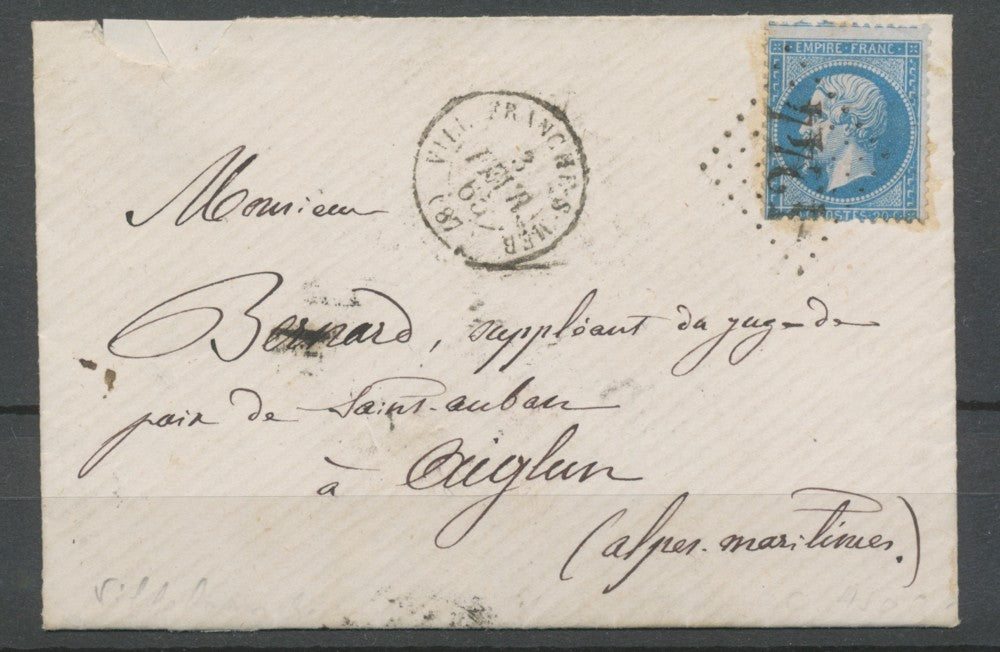 EMPIRE·FRANC·
POSTES·20C
(87) VILLEFRANCHE-S-MER
FEVR.
Monsieur
Bernard, suppléant du juge de
paix de Saint-auban
à Aiglun
(alpes-maritimes.)